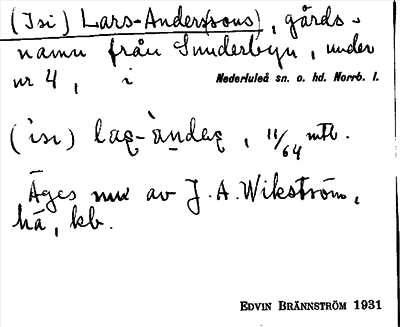 (Isi) Lars-Anders(sons), gårds-
namn från Sunderbyn, under
nr 4, i Nederluleå sn. o. hd. Norrb. l.
(isi) laʂ-andeʂ, 11/64 mtl.
Äges nu av J. A. Wikström,
hä, kb.
EDVIN BRÄNNSTRÖM 1931